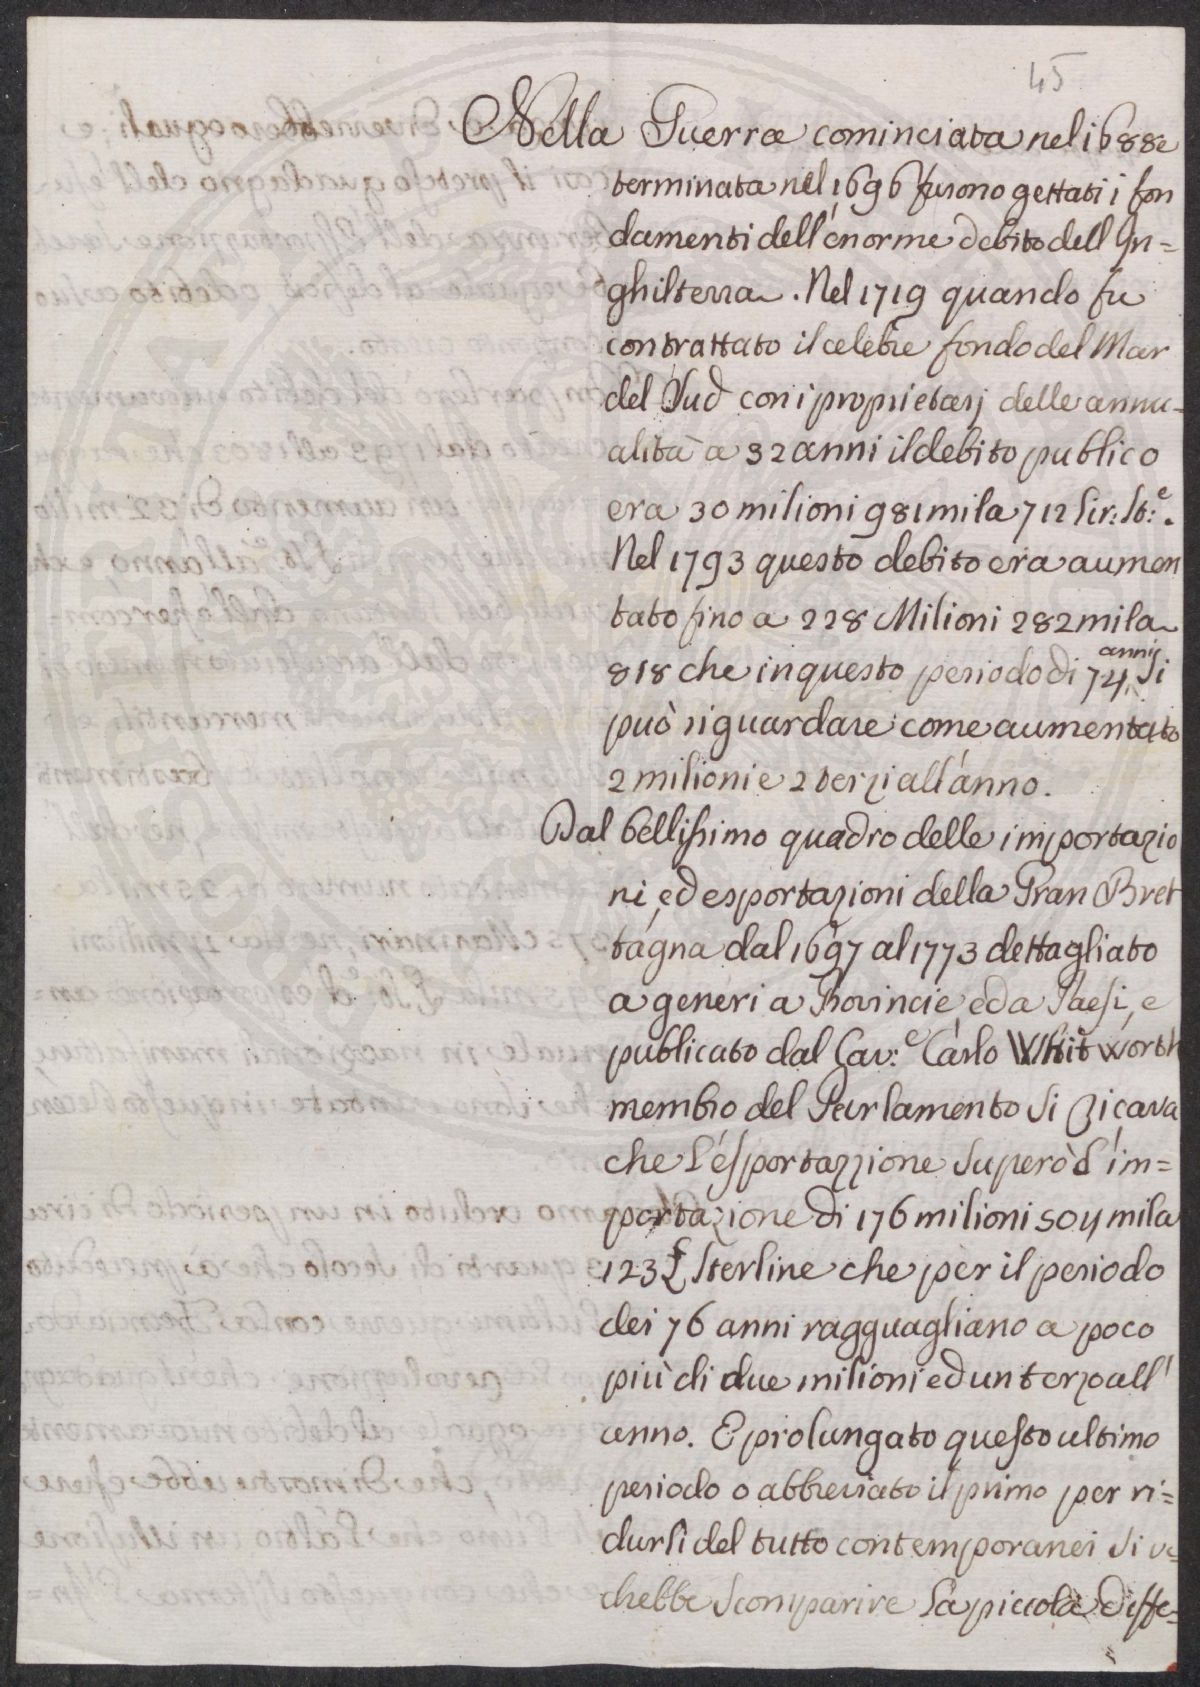 45
Nella Guerra cominciata nel 1688 e
terminata nel 1696 furono gettati i fon
damenti dell'enorme debito dell In=
ghilterra. Nel 1719 quando fu
contrattato il celebre fondo del Mar
del Sud con i proprietarj delle annu=
alità a 32 anni il debito publico
era 30 milioni 981 mila 712 lir: st:e.
Nel 1793 questo debito era aumen
tato fino a 228 Milioni 282 mila
818 che in questo periodo di 74 anni si
può riguardare come aumentato
2 milioni e 2 terzi all'anno.
Dal bellissimo quadro delle importazio
ni, ed esportazioni della Gran Bret
tagna dal 1697 al 1773 dettagliato
a generi a Provincie ed a Paesi, e
publicato dal Cav:e Carlo Whitworth
membro del Parlamento si ricava
che l'esportazzione superò l'im=
portazione di 176 milioni 504 mila
123 £ Sterline che per il periodo
dei 76 anni ragguagliano a poco
più di due milioni ed un terzo all'
anno. E prolungato questo ultimo
periodo o abbreviato il primo per ri=
dursi del tutto contemporanei si ve=
drebbe scomparire la piccola diffe=